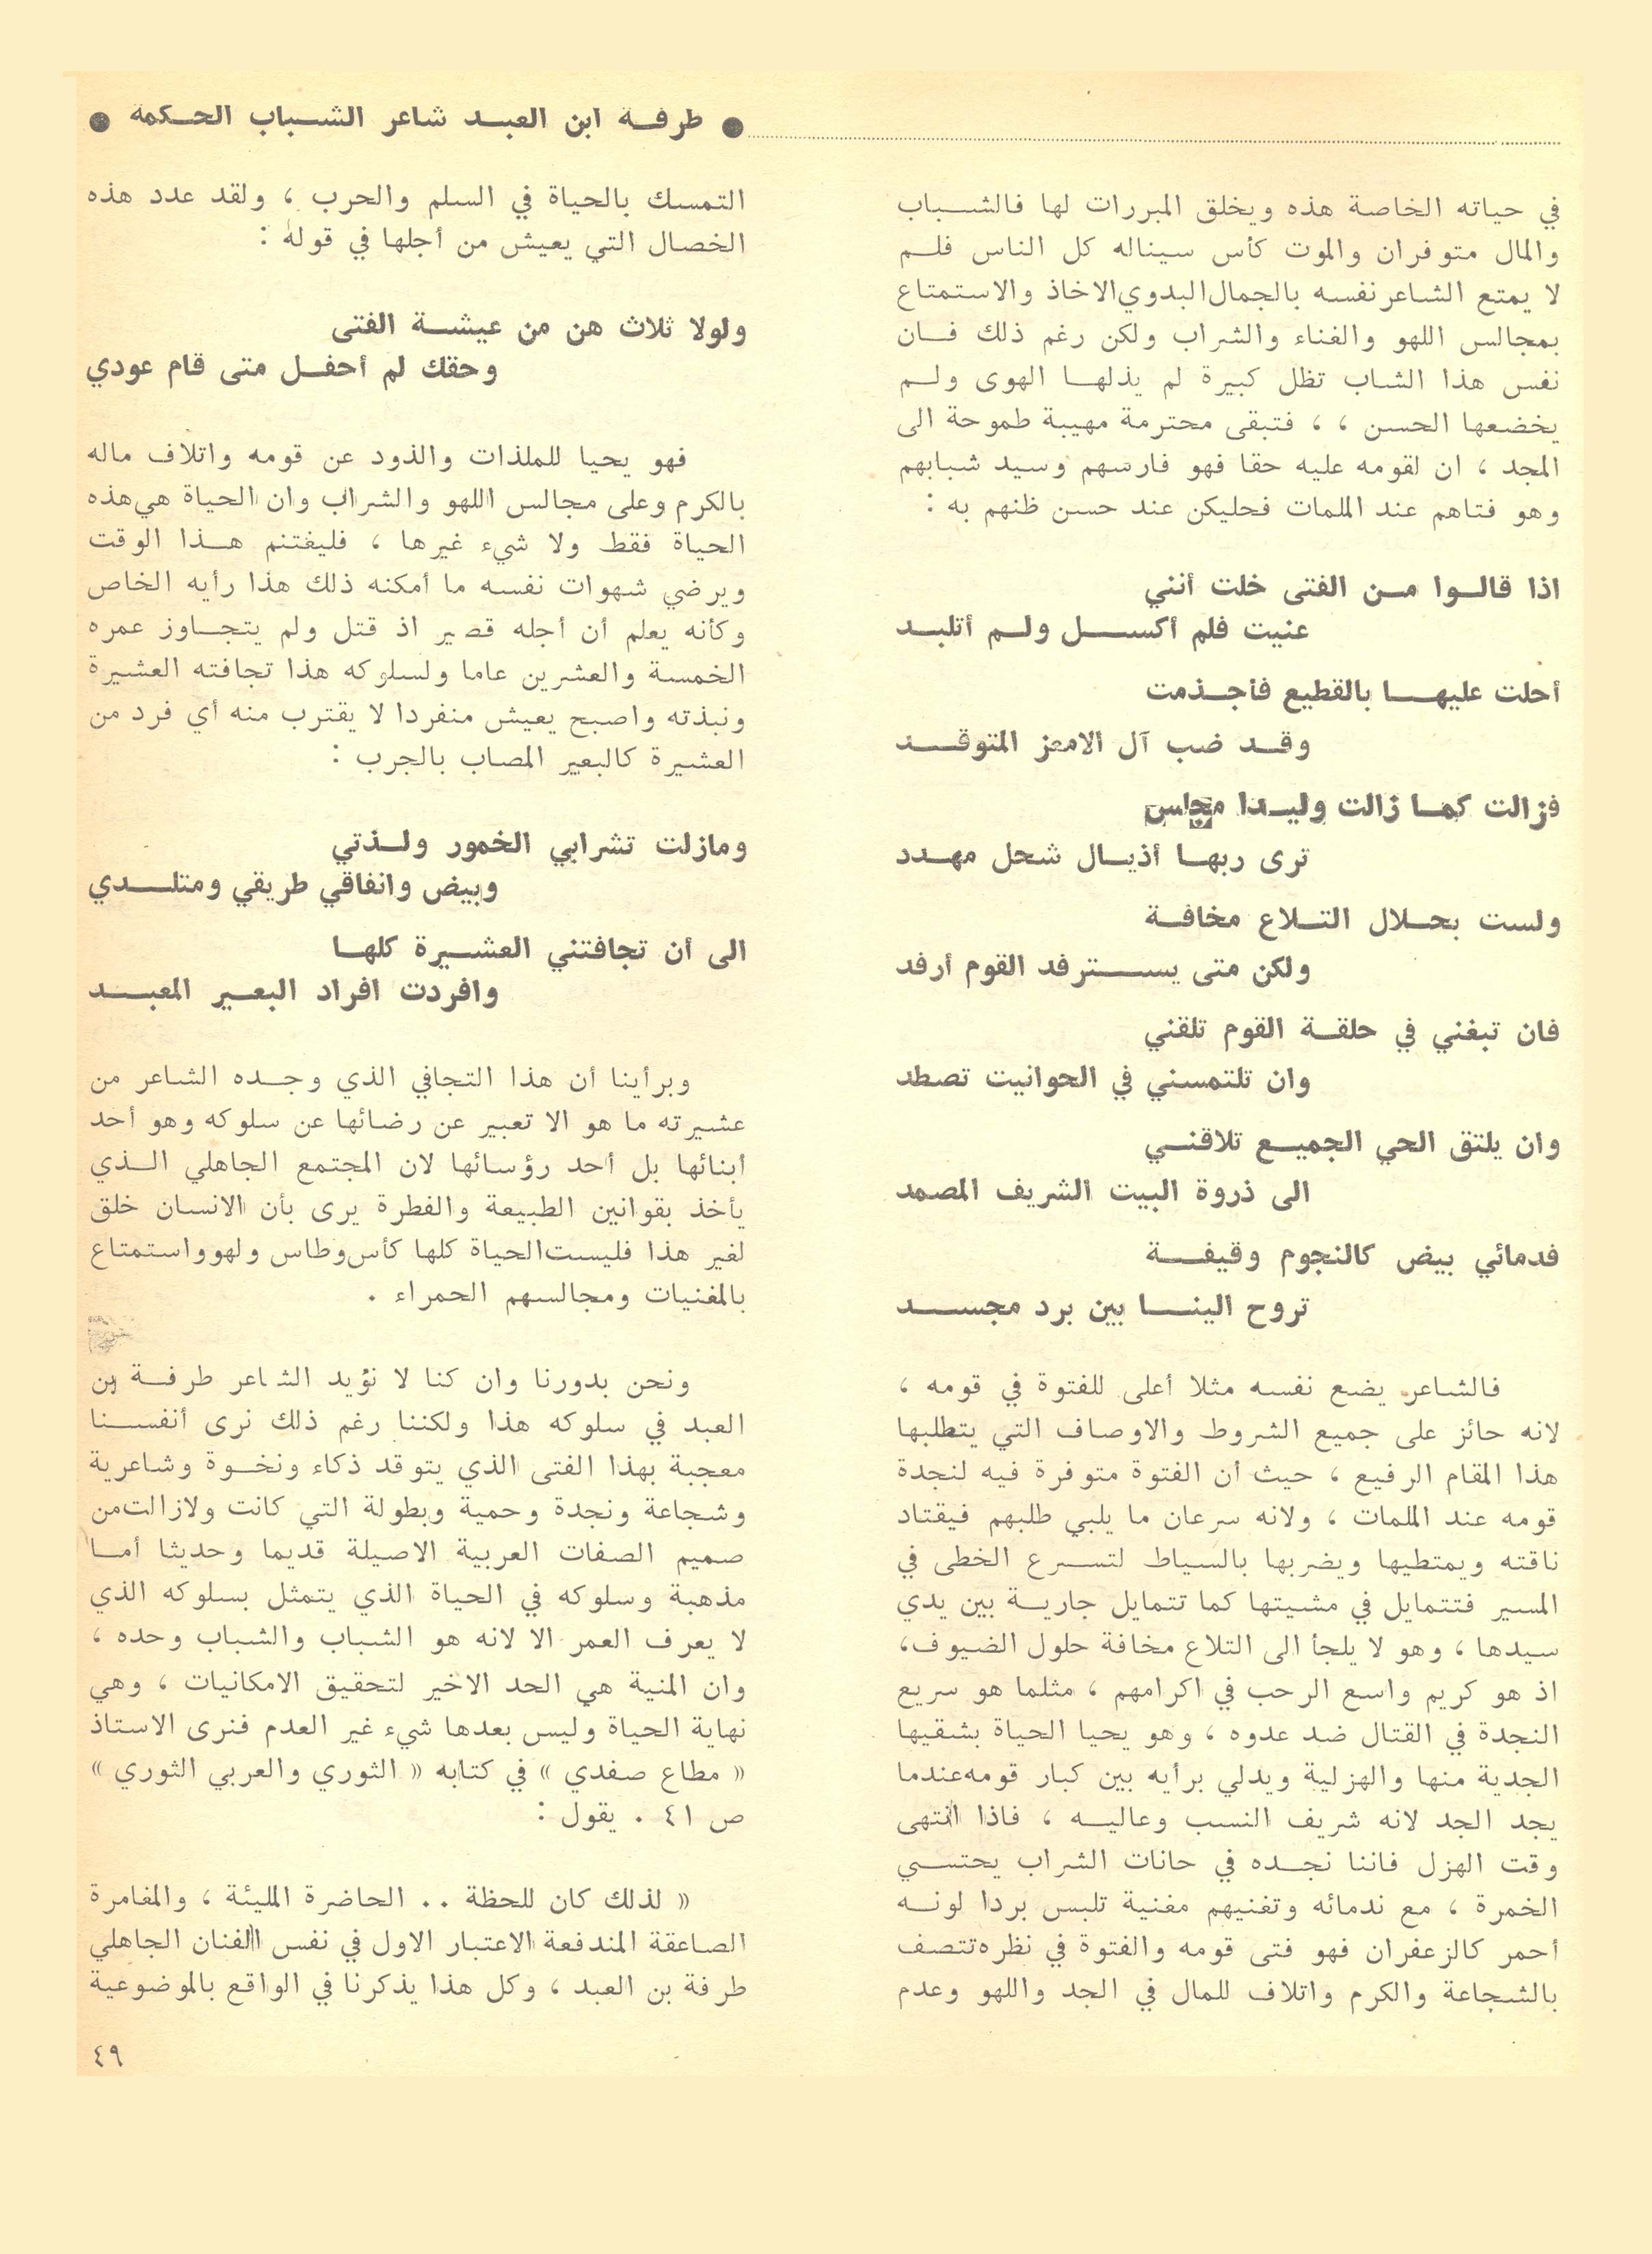 ● طرفة ابن العبد شاعر الشباب الحكمة ●
في حياته الخاصة هذه ويخلق المبررات لها فالشباب
والمال متوفران والموت كأس سيناله كل الناس فلم
لا يمتع الشاعر نفسه بالجمال البدوي الاخاذ والاستمتاع
بمجالس اللهو والغناء والشراب ولكن رغم ذلك فان
نفس هذا الشاب تظل كبيرة لم يذلها الهوى ولم
يخضعها الحسن ، ، فتبقى محترمة مهيبة طموحة الى
المجد ، ان لقومه عليه حقا فهو فارسهم وسيد شبابهم
وهو فتاهم عند الملمات فحليكن عند حسن ظنهم به :
اذا قالوا من الفتى خلت أنني
عنيت فلم أكسل ولم أتلبد
أحلت عليها بالقطيع فأجذمت
وقد ضب آل الامعز المتوقد
فزالت كما زالت وليدا مجلس
ترى ربها أذيال شحل مهدد
ولست بحلال التلاع مخافة
ولكن متى يسترفد القوم أرفد
فان تبغني في حلقة القوم تلقني
وان تلتمسني في الحوانيت تصطد
وان يلتق الحي الجميع تلاقني
الى ذروة البيت الشريف المصمد
فدمائي بيض كالنجوم وقيفة
تروح الينا بين برد مجسد
فالشاعر يضع نفسه مثلا أعلى للفتوة في قومه ،
لانه حائز على جميع الشروط والاوصاف التي يتطلبها
هذا المقام الرفيع ، حيث أن الفتوة متوفرة فيه لنجدة
قومه عند الملمات ، ولانه سرعان ما يلبي طلبهم فيقتاد
ناقته ويمتطيها ويضربها بالسياط لتسرع الخطى في
المسير فتتمايل في مشيتها كما تتمايل جارية بين يدي
سيدها ، وهو لا يلجأ الى التلاع مخافة حلول الضيوف،
اذ هو كريم واسع الرحب في اكرامهم ، مثلما هو سريع
النجدة في القتال ضد عدوه ، وهو يحيا الحياة بشقيها
الجدية منها والهزلية ويدلي برأيه بين كبار قومه عندما
يجد الجد لانه شريف النسب وعاليه ، فاذا انتهى
وقت الهزل فاننا نجده في حانات الشراب يحتسي
الخمرة ، مع ندمائه وتغنيهم مغنية تلبس بردا لونه
أحمر كالزعفران فهو فتى قومه والفتوة في نظره تتصف
بالشجاعة والكرم واتلاف للمال في الجد واللهو وعدم
التمسك بالحياة في السلم والحرب ، ولقد عدد هذه
الخصال التي يعيش من أجلها في قوله :
ولولا ثلاث هن من عيشة الفتى
وحقك لم أحفل متى قام عودي
فهو يحيا للملذات والذود عن قومه واتلاف ماله
بالكرم وعلى مجالس اللهو والشراب وان الحياة هي هذه
الحياة فقط ولا شيء غيرها ، فليغتنم هذا الوقت
ويرضي شهوات نفسه ما أمكنه ذلك هذا رأيه الخاص
وكأنه يعلم أن أجله قصير اذ قتل ولم يتجاوز عمره
الخمسة والعشرين عاما ولسلوكه هذا تجافته العشيرة
ونبذته واصبح يعيش منفردا لا يقترب منه أي فرد من
العشيرة كالبعير المصاب بالجرب :
ومازلت تشرابي الخمور ولذتي
وبيض وانفاقي طريقي ومتلدي
الى أن تجافتني العشيرة كلها
وافردت افراد البعير المعبد
وبرأينا أن هذا التجافي الذي وجده الشاعر من
عشيرته ما هو الا تعبير عن رضائها عن سلوكه وهو أحد
أبنائها بل أحد رؤسائها لان المجتمع الجاهلي الذي
يأخذ بقوانين الطبيعة والفطرة يرى بأن الانسان خلق
لغير هذا فليست الحياة كلها كأس وطاس ولهو واستمتاع
بالمغنيات ومجالسهم الحمراء .
ونحن بدورنا وان كنا لا نؤيد الشاعر طرفة بن
العبد في سلوكه هذا ولكننا رغم ذلك نرى أنفسنا
معجبة بهذا الفتى الذي يتوقد ذكاء ونخوة وشاعرية
وشجاعة ونجدة وحمية وبطولة التي كانت ولازالت من
صميم الصفات العربية الاصيلة قديما وحديثا أما
مذهبة وسلوكه في الحياة الذي يتمثل بسلوكه الذي
لا يعرف العمر الا لانه هو الشباب والشباب وحده ،
وان المنية هي الحد الاخير لتحقيق الامكانيات ، وهي
نهاية الحياة وليس بعدها شيء غير العدم فنرى الاستاذ
« مطاع صفدي » في كتابه « الثوري والعربي الثوري »
ص ٤١ . يقول :
« لذلك كان للحظة .. الحاضرة المليئة ، والمغامرة
الصاعقة المندفعة الاعتبار الاول في نفس الفنان الجاهلي
طرفة بن العبد ، وكل هذا يذكرنا في الواقع بالموضوعية
٤٩